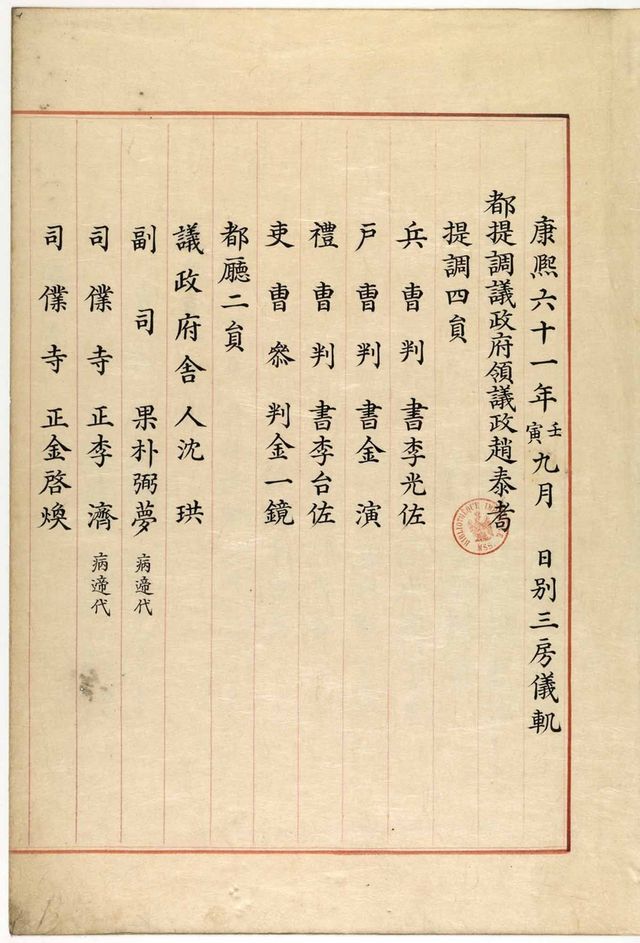 康熙六十一年壬寅九月 日別三房儀軌
都提調議政府領議政趙泰耉
提調四貟
兵曺判書李光佐
戶曺判書金演
禮曺判書李台佐
吏曺叅判金一鏡
都廳二貟
議政府舍人沈珙
副司果朴弼夢 病遞代
司僕寺正李濟 病遞代
司僕寺正金啓煥
BIBLIOTHEQUE
MSS